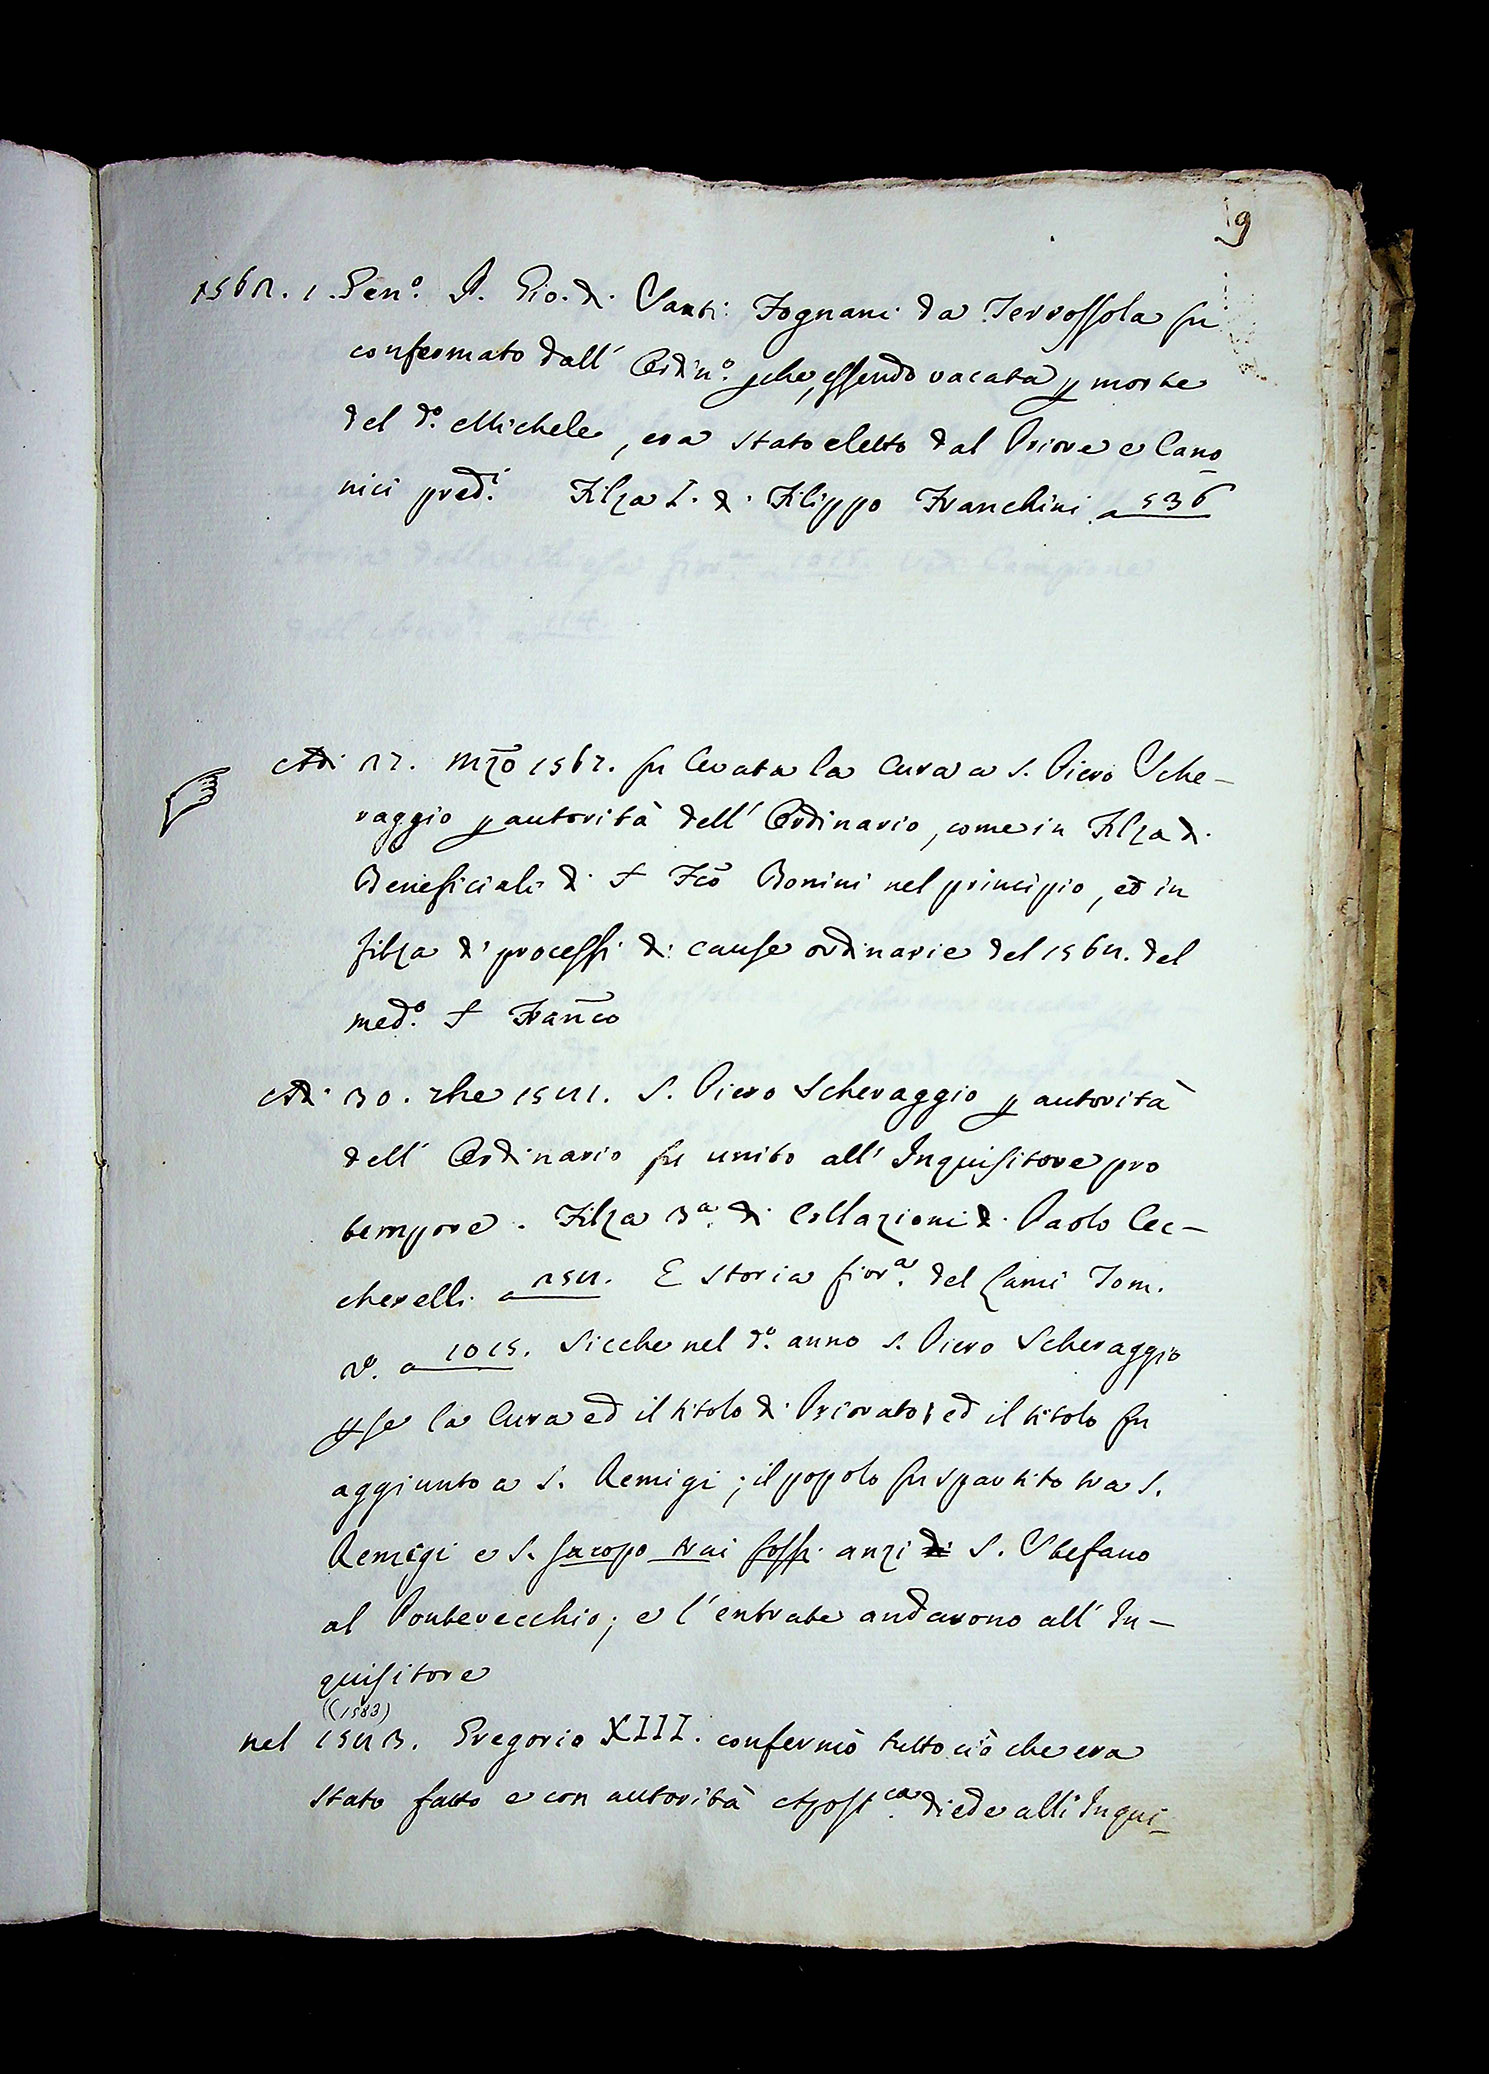 9
1562. 1. Gen.º P. Gio. di Santi Fognani da Terrossola fu
confermato dall' Ordin.º pche, essendo vacata p morte
del d.º Michele, era stato eletto dal Priore e Cano-
nici pred.i Filza I. di Filippo Franchini a 536
Adi 27. Mzo 1567. fu levata la Cura a S. Piero Sche-
raggio p autorità dell' Ordinario, come in Filza di
Beneficiali di S Fco Bonini nel principio, ed in
filza di processi di cause ordinarie del 1568. del
med.º S Franco
Adi 30. 7bre 1581. S. Piero Scheraggio p autorità
dell' Ordinario fu unito all' Inquisitore pro
tempore. Filza 3.a di Collazioni di Paolo Cec-
cherelli a 258. E storia fior.a del Lami Tom.
2. a 1015. Sicche nel d.º anno S. Piero Scheraggio
pse la Cura ed il titolo di Priorato; ed il titolo fu
aggiunto a S. Remigi; il popolo fu spartito tra S.
Remigi e S. Jacopo trai fossi anzi di S. Stefano
al Pontevecchio; e l'entrate andarono all' In-
quisitore
((1583)
nel 1583. Gregorio XIII. confermò tutto ciò che era
stato fatto e con autorità Apost.ca diede alli Inqui-